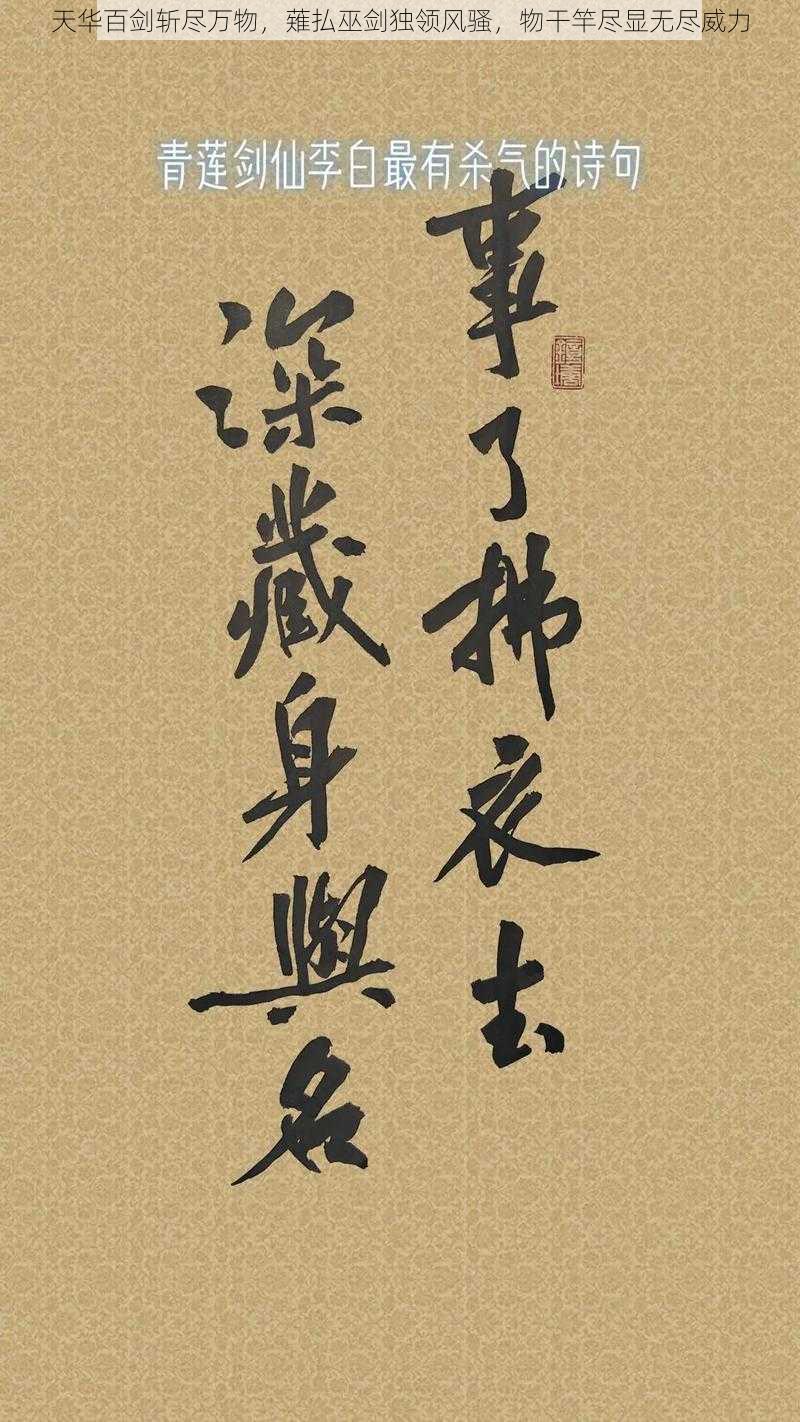 天华百剑斩尽万物，薙払巫剑独领风骚，物干竿尽显无尽威力
青莲剑仙李白最有杀气的诗句
事了拂衣去
深藏身與名